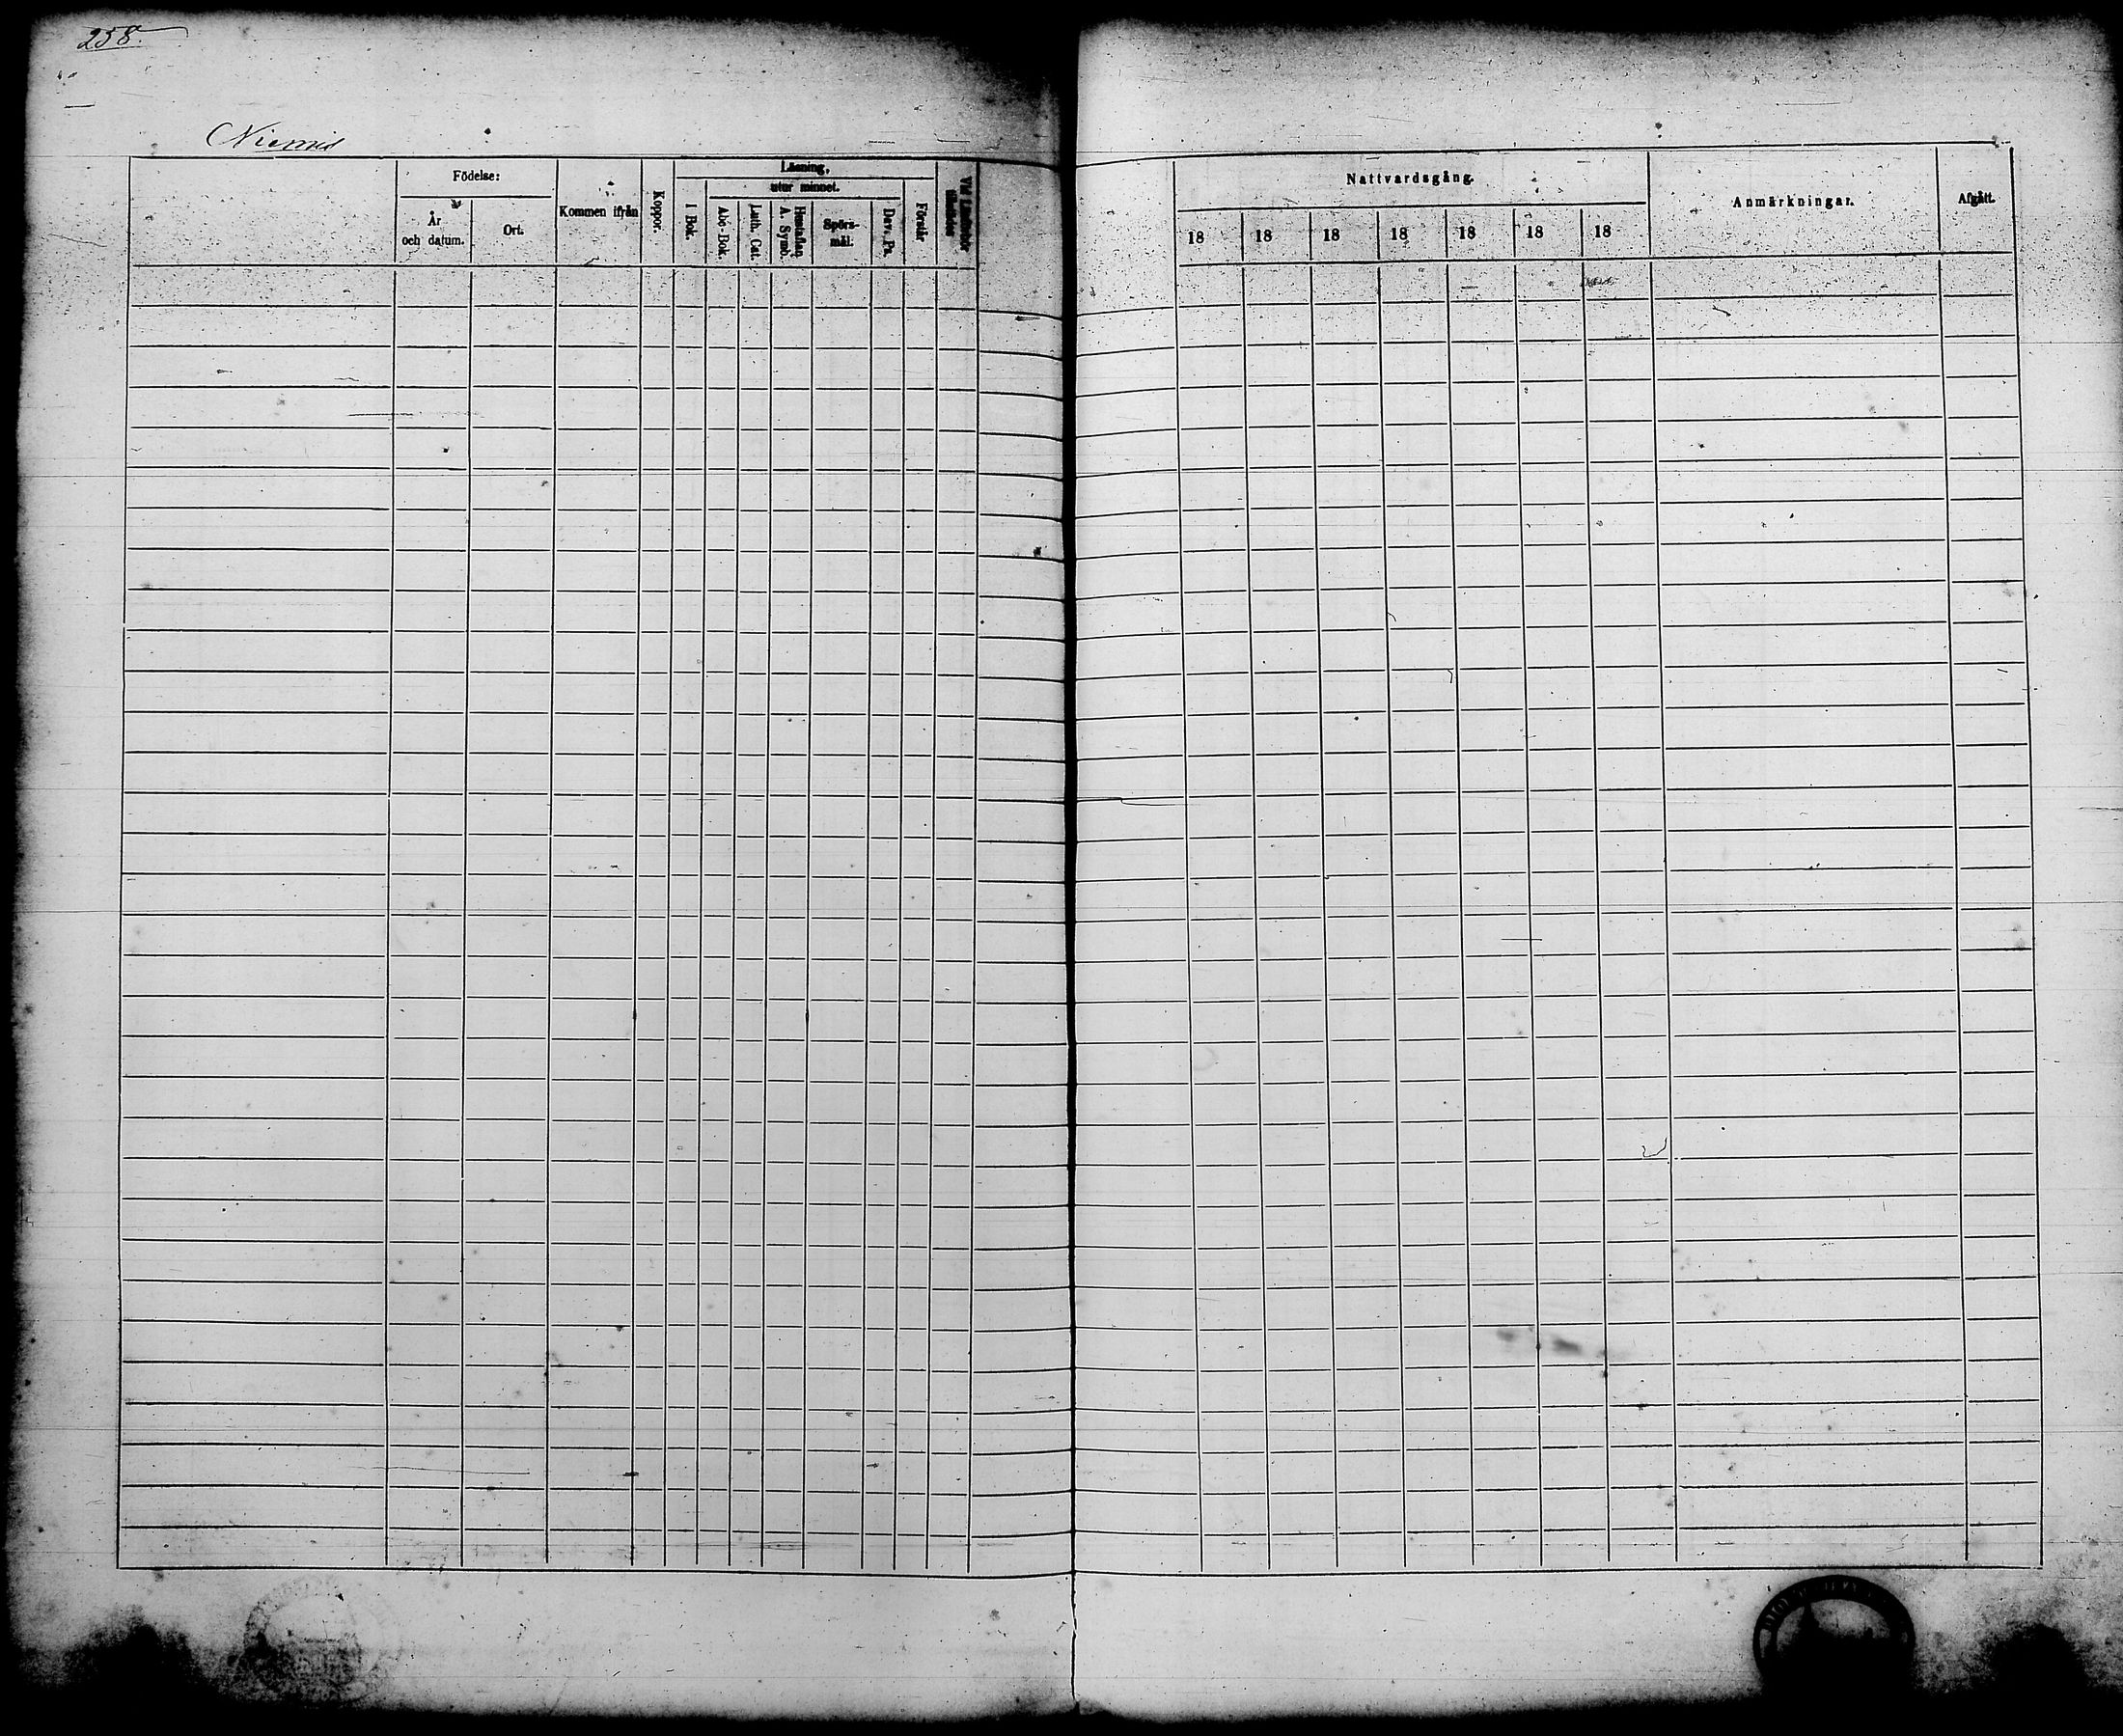 258.
Niemis
Födelse:
År och datum.
Ort.
Kommen ifrån
Koppor.
Läsning,
i Bok.
utur minnet.
Abc-Bok.
Luth. Cat.
Hustaflan, A. Symb.
Spörs-mål.
Dav. Ps.
Förstår
Nattvardsgång.
18 18 18 18 18 18 18
Anmärkningar.
Afgått.